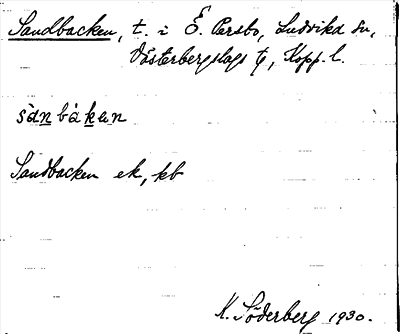 Sandbacken, t. i Ö. Persbo, Ludvika sn,
Västerbergslags tg, Kopp. l.
sànbàken
Sandbacken ek, kb
K. Söderberg 1930.